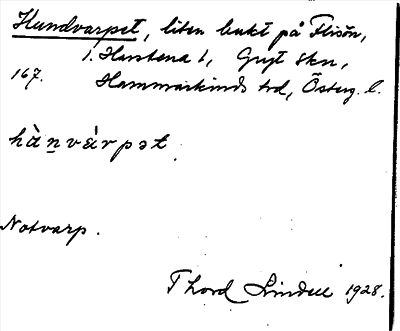 Hundvarpet, liten bukt på Flisön,
1. Harstena 1, Gryt skn,
167. Hammarkinds hd, Österg. l.
hànvárpət
Notvarp.
Thord Lindell 1928.